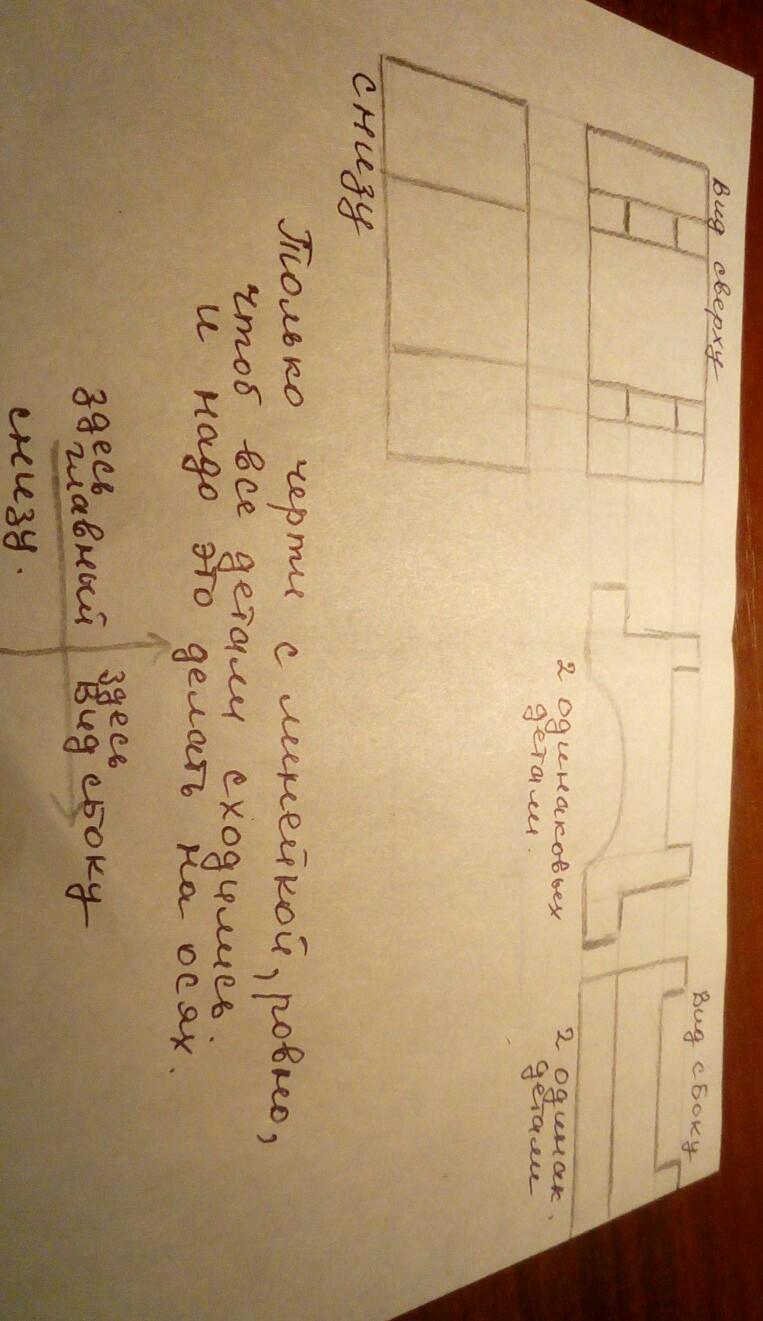 Вид сверху
Вид сбоку
2 одинаковых
детали.
2 одинак.
детали
снизу
Только черти с линейкой, ровно,
чтоб все детали сходились.
и надо это делать на осях.
здесь
главный
снизу.
здесь
вид сбоку